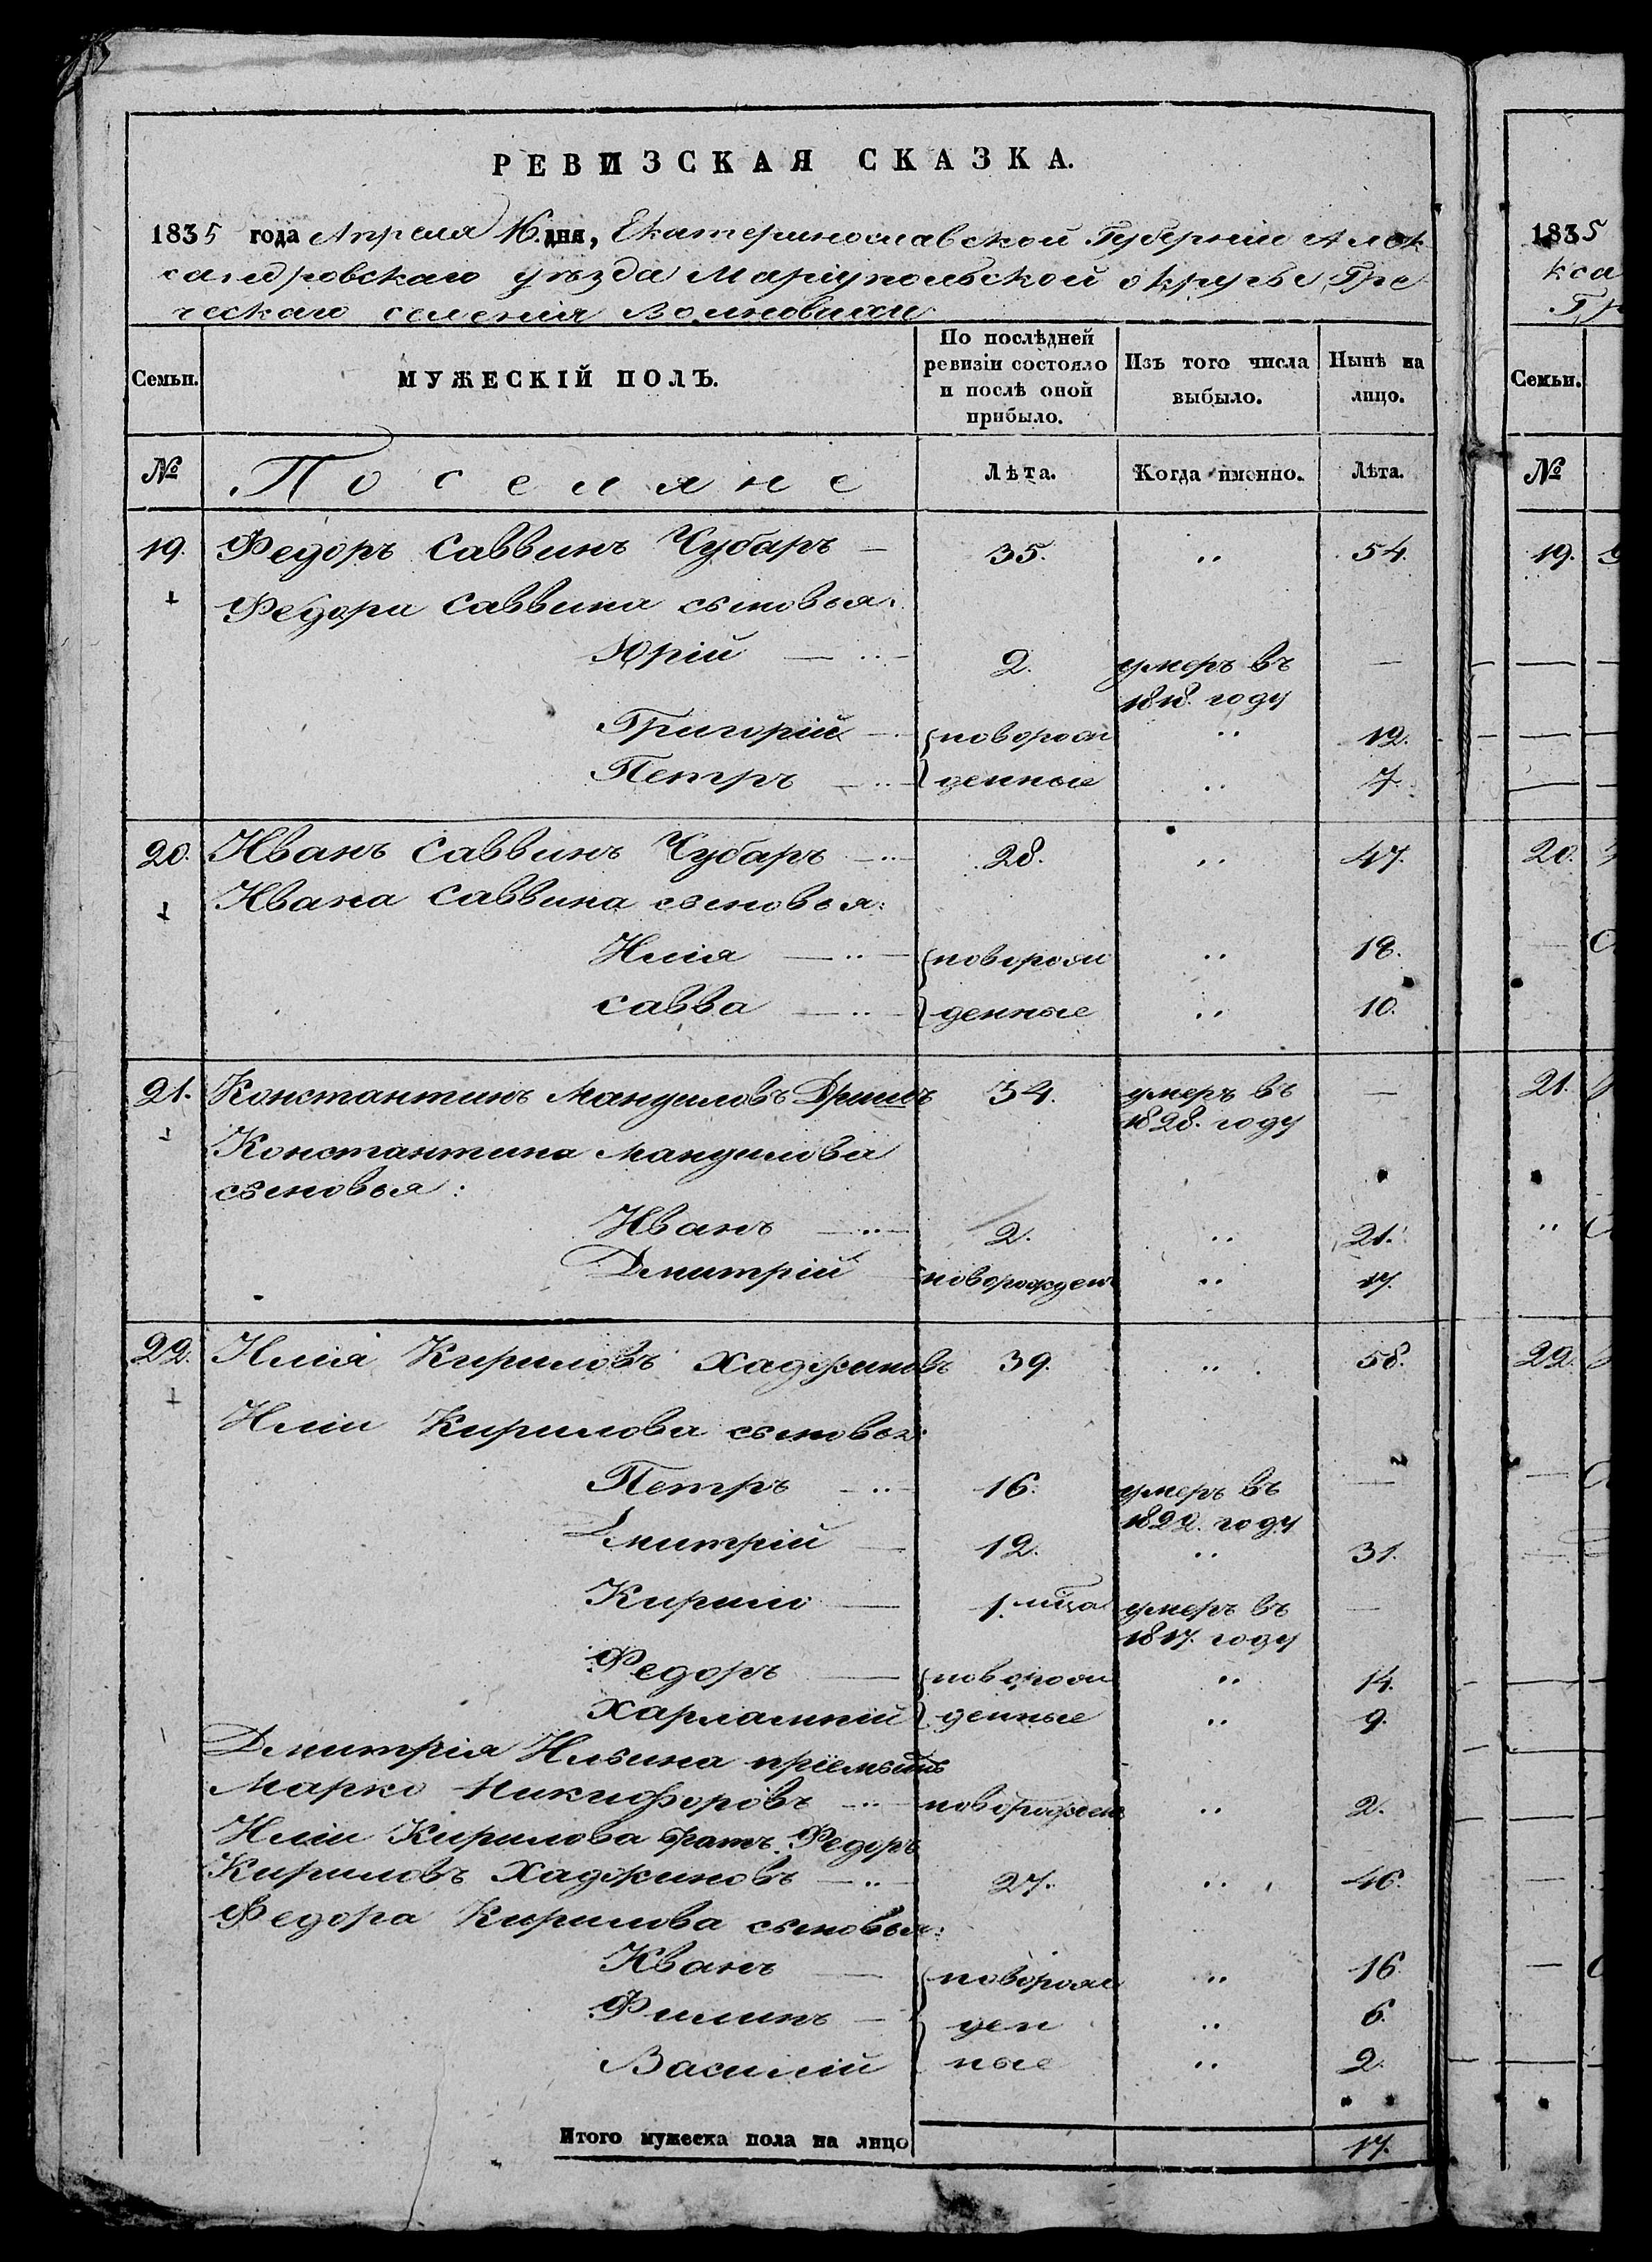 РЕВИЗСКАЯ СКАЗКА.
1835 года Апреля 16. дня, Екатеринославской Губерніи Алек
сандровскаго уѣзда Маріупольской округѣ Гре
ческаго селенія
Семьи.
МУЖЕСКІЙ ПОЛЪ.
По послѣдней ревизіи состояло и послѣ оной прибыло.
Изъ того числа выбыло.
Нынѣ на лицо.
№ Поселяне Лѣта. Когда именно. Лѣта.
19. Федоръ Саввинъ Чубаръ — 35. .. 54.
Федора Саввина сыновья:
Юрій — .. — 2. умеръ въ —
1818. году
Григорій — новорож .. 12.
Петръ — .. — денные .. 7.
20. Иванъ Саввинъ Чубаръ — .. — 28. .. 47.
Ивана Саввина сыновья:
Илія — .. — новорож .. 18.
Савва — .. — денные .. 10.
21. Константинъ Мануиловъ 34. умеръ въ —
1828. году
Константина Мануилова
сыновья:
Иванъ — .. — 2. .. 21.
Дмитрій новорожден .. 17.
22. Илія Кириловъ Хаджиновъ 39. .. 58.
Иліи Кирилова сыновья:
Петръ — .. — 16. умеръ въ —
1822. году
Дмитрій — 12. .. 31.
Кирило — 1. мца умеръ въ —
1817. году
Федоръ — новорож .. 14.
Харлампій денные .. 9.
Дмитрія Ильина пріемышъ
Марко Никифоровъ — .. — новорожден .. 2.
Иліи Кирилова братъ Федоръ
Кириловъ Хаджиновъ — .. — 27. .. 46.
Федора Кирилова сыновья:
Иванъ — новорож .. 16.
Филипъ — ден .. 6.
Василій ные .. 2.
Итого мужеска пола на лицо 17.
1835
кса
Семьи.
№
19.
20.
21.
22.